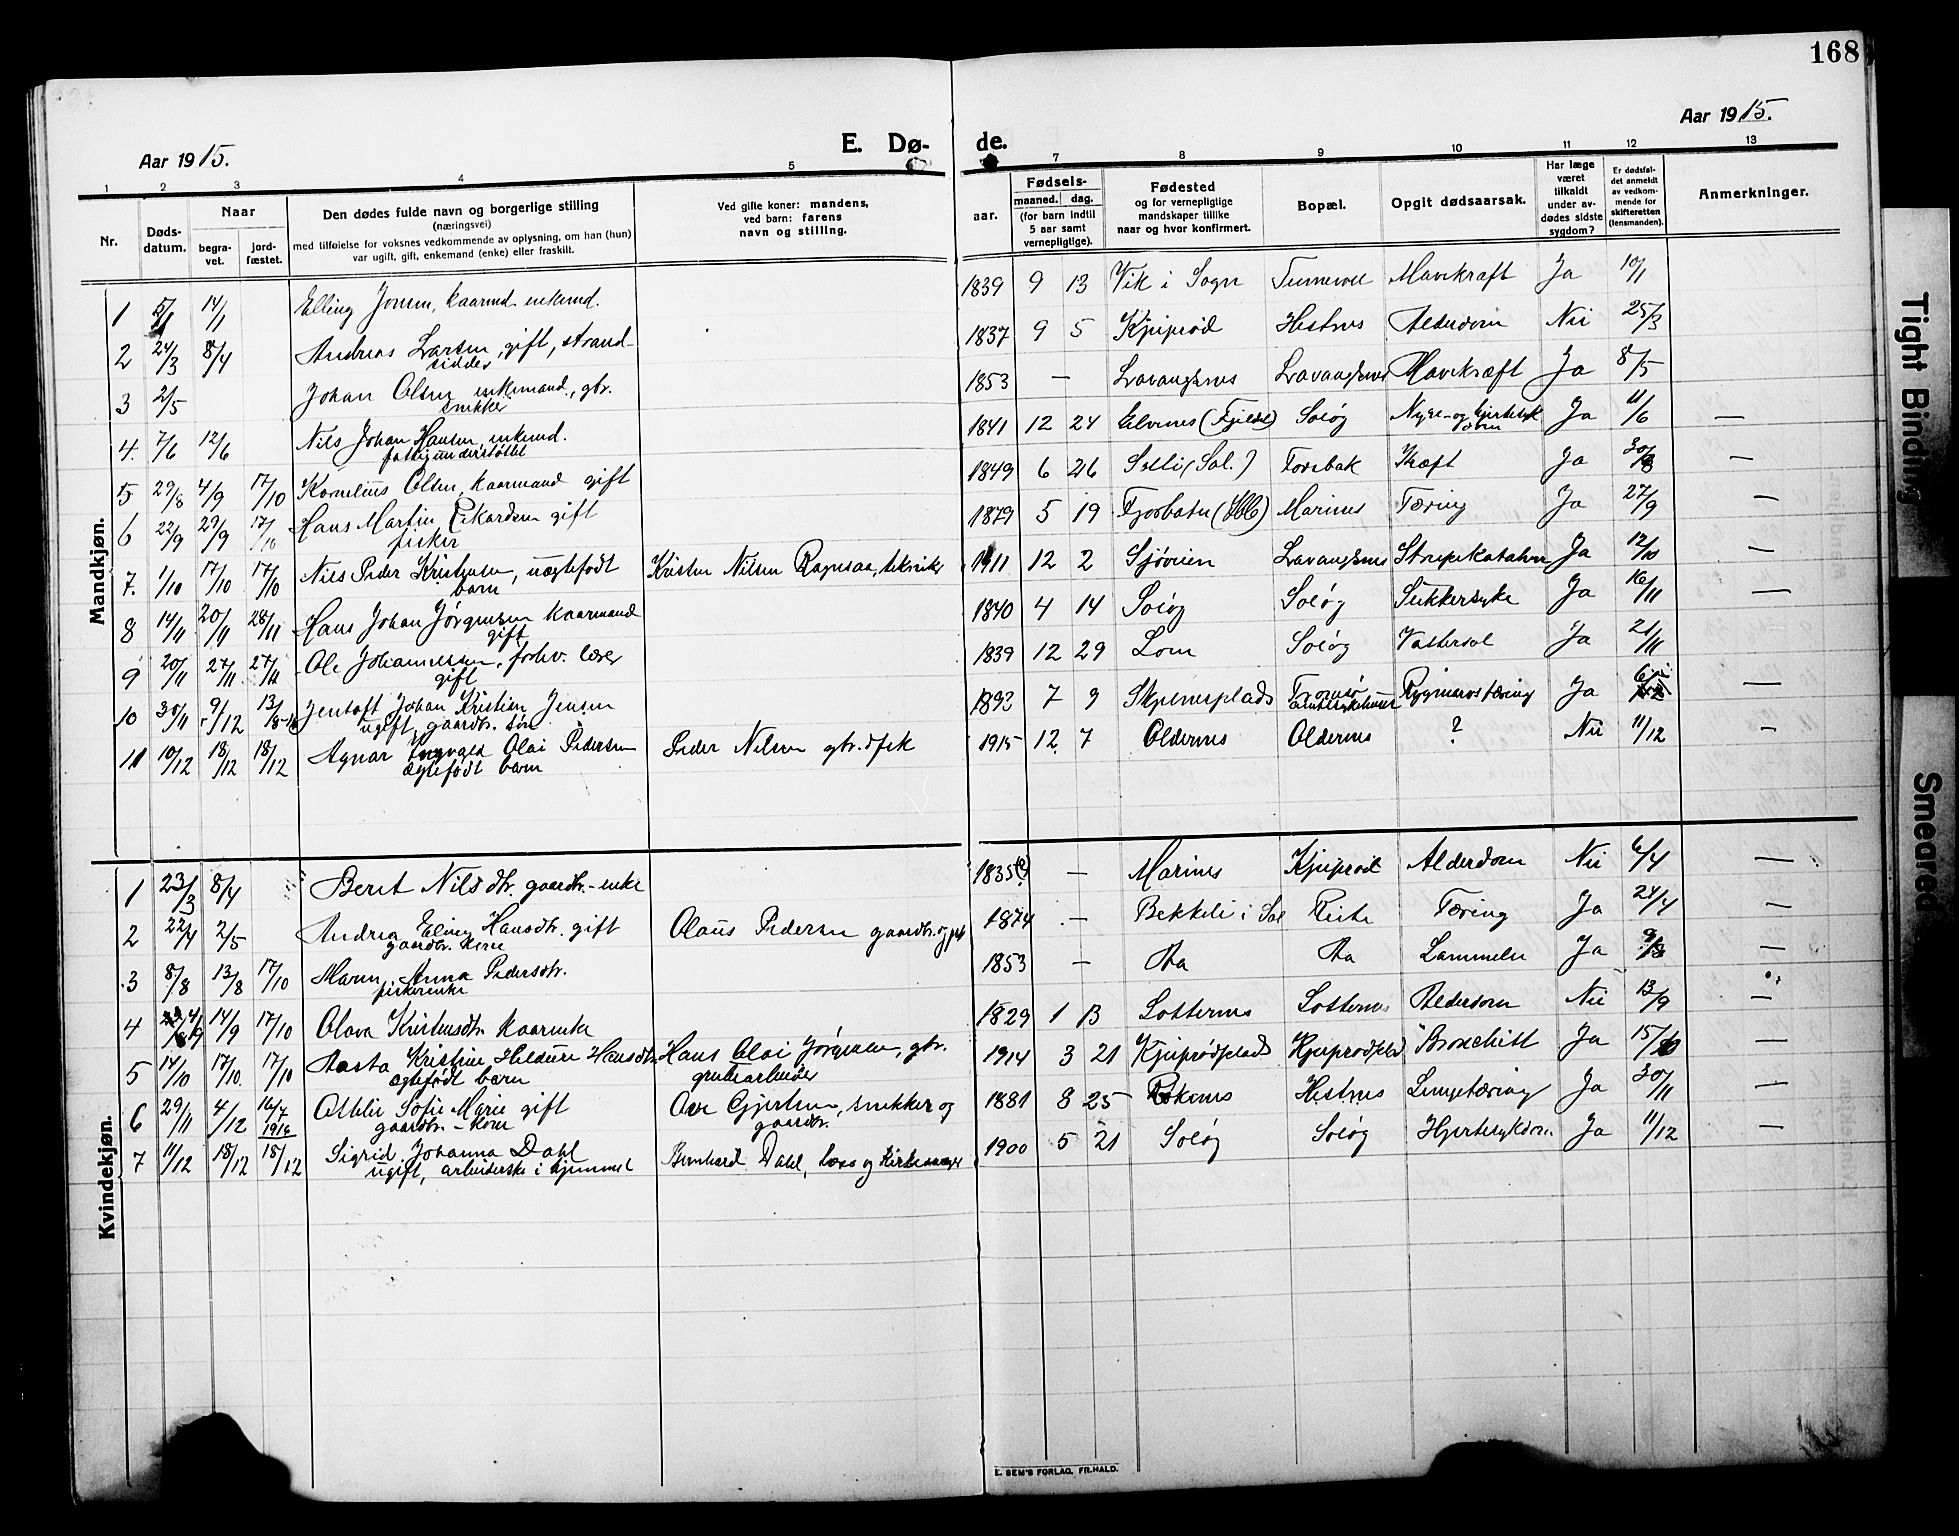 168
Aar 1915.
E. Dø-
de.
Aar 1915.
1 2 3 4 5
7 8 9 10 11 12 13
Nr.
Døds-
datum.
Naar
begra-
vet.
jord-
fæstet.
Den dødes fulde navn og borgerlige stilling
(næringsvei)
med tilføielse for voksnes vedkommende av oplysning, om han (hun)
var ugift, gift, enkemand (enke) eller fraskilt.
Ved gifte koner: mandens,
ved barn: farens
navn og stilling.
aar.
Fødsels-
maaned. dag.
(for barn indtil
5 aar samt
vernepligtige).
Fødested
og for vernepligtige
mandskaper tillike
naar og hvor konfirmert.
Bopæl.
Opgit dødsaarsak.
Har læge
været
tilkaldt
under av-
dødes sidste
sygdom?
Er dødsfal-
det anmeldt
av vedkom-
mende for
skifteretten
(lensmanden).
Anmerkninger.
Mandkjøn.
1 5/1 14/1 Elling Jonsen, kaarmd. enkemd. 1839 9 13 Vik i Sogn Mavekraft Ja 10/1
2 24/3 8/4 Andreas Larsen, gift, strand-
sidder 1837 9 5 Kjeiprød Hestnes Alderdom Nei 25/3
3 2/5 Johan Olsen enkemand, gbr.
snikker 1853 — Lavangsnes Lavangsnes Mavekræft Ja 8/5
4. 7/6 12/6 Nils Johan Hansen, enkemd.
fattigunderstøttet 1841 12 24 Elvenes (Fjeldd) Soløg Nyre- og hjertesyk
dom Ja 11/6 —
5 29/8 4/9 17/10 Kornelius Olsen, kaarmand gift 1849 6 26 Selli (Sal.) Forsbak Kræft Ja 30/8 —
6 22/9 29/9 17/10 Hans Martin Rikardsen gift
fisker 1879 5 19 Marines Tæring Ja 27/9 —
7. 1/10 17/10 17/10 Nils Peder Kristensen, uægtefødt
barn Kristen Nilsen tekniker 1911 12 2 Sjøveien Lavangsnes Ja 12/10 —
8 14/11 20/11 28/11 Hans Johan Jørgensen kaarmand
gift 1840 4 14 Soløg Soløg Sukkersyke Ja 16/11 —
9 20/11 27/11 27/11 Ole Johannessen, forhv. lærer
gift 1839 12 29 Lom Soløg Vattersot Ja 21/11
10 30/11 9/12 13/ Jentoft Johan Kristian Jensen
ugift, gaardbr. søn 1893 7 9 Skjenesplads Tromsø
amtssykehus Rygmarvstæring Ja 6/12 —
11 10/12 18/12 18/12 Agnar Ingvald Olai Pedersen
ægtefødt barn Peder Nilsen gbr. 1915 12 7 Oldernes Oldernes ? Nei 11/12 —
Kvindekjøn.
1 23/3 8/4 Berit Nilsdtr. gaardbr.-enke 1835(?) — Marines Kjeiprød Alderdom Nei 6/4 —
2 22/4 2/5 Andrea Elen Hansdtr. gift
gaardbr. kone Olaus Pedersen gaardbr. og 1874 — Bekkeli i Sal Tæring Ja 24/4 —
3 8/8 13/8 17/10 Maren Anna Pedersdtr.
fiskerenke 1853 — Aa Aa Lammelse Ja 9/8 —
4 4/9 14/9 17/10 Olava Kristensdtr. kaarenke 1829 1 13 Lotternes Lotternes Alderdom Nei 13/9 —
5 14/10 17/10. 17/10 Aasta Kristine Hansdtr.
ægtefødt barn Hans Olai Jørgensen, gbr.
grubearbeider 1914 3 21 Kjeiprødplads Kjeiprødplad Bronchitt Ja 15/10 —
6 29/11 4/12 16/7
1916 Ottelie Sofie Marie gift
gaardbr.-kone Ove Gjertsen, snekker og
gaardbr. 1881 8 25 Hestnes Lungetæring Ja 30/11 —
7 11/12 18/12 18/12 Sigrid Johanna Dahl
ugift, arbeiderske i hjemmet Bernhard Dahl, og Kirkesanger 1900 5 21 Soløg Soløg Hjertesykdom Ja 11/12 —
E. SEM'S FORLAG, FR.HALD.
Tight Binding
Smeared